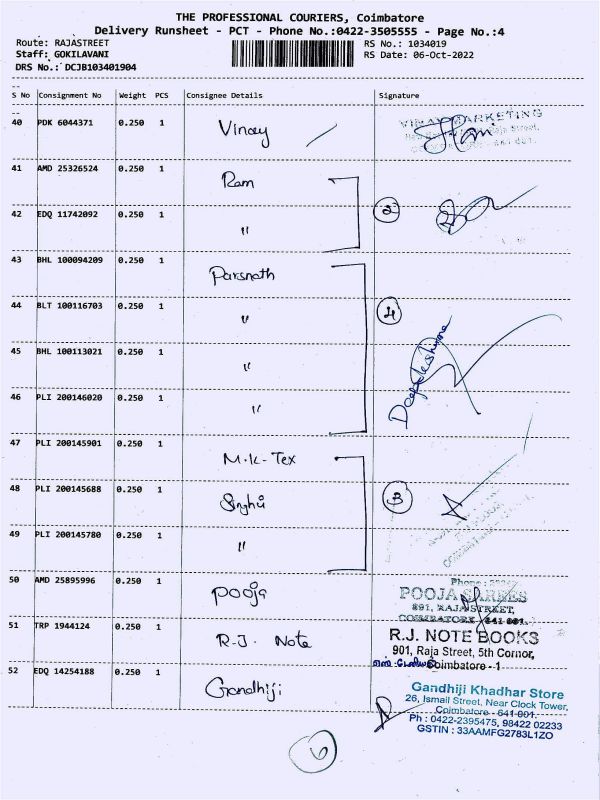 THE PROFESSIONAL COURIERS, Coimbatore
Delivery Runsheet - PCT - Phone No.:0422-3505555 - Page No.:4
Route: RAJASTREET RS No.: 1034019
Staff: GOKILAVANI RS Date: 06-Oct-2022
DRS No.: DCJB103401904
S No Consignment No Weight PCS Consignee Details Signature
40 PDK 6044371 0.250 1 Vinay
VINAY MARKETING
41 AMD 25326524 0.250 1 Ram
42 EDQ 11742092 0.250 1 " 2
43 BHL 100094209 0.250 1 Parsnath
44 BLT 100116703 0.250 1 " 4
45 BHL 100113021 0.250 1 "
46 PLI 200146020 0.250 1 "
47 PLI 200145901 0.250 1 M.K-Tex
48 PLI 200145688 0.250 1 Singhvi 3
49 PLI 200145780 0.250 1 "
50 AMD 25895996 0.250 1 Pooja
Phone :
POOJA SAREES
891, RAJA STREET,
COIMBATORE - 641 001.
51 TRP 1944124 0.250 1 R.J. Note
R.J. NOTE BOOKS
901, Raja Street, 5th Cornor,
Coimbatore - 1
52 EDQ 14254188 0.250 1 Gandhiji
Gandhiji Khadhar Store
26, Ismail Street, Near Clock Tower,
Coimbatore - 641-001.
Ph : 0422-2395475, 98422 02233
GSTIN : 33AAMFG2783L1ZO
6